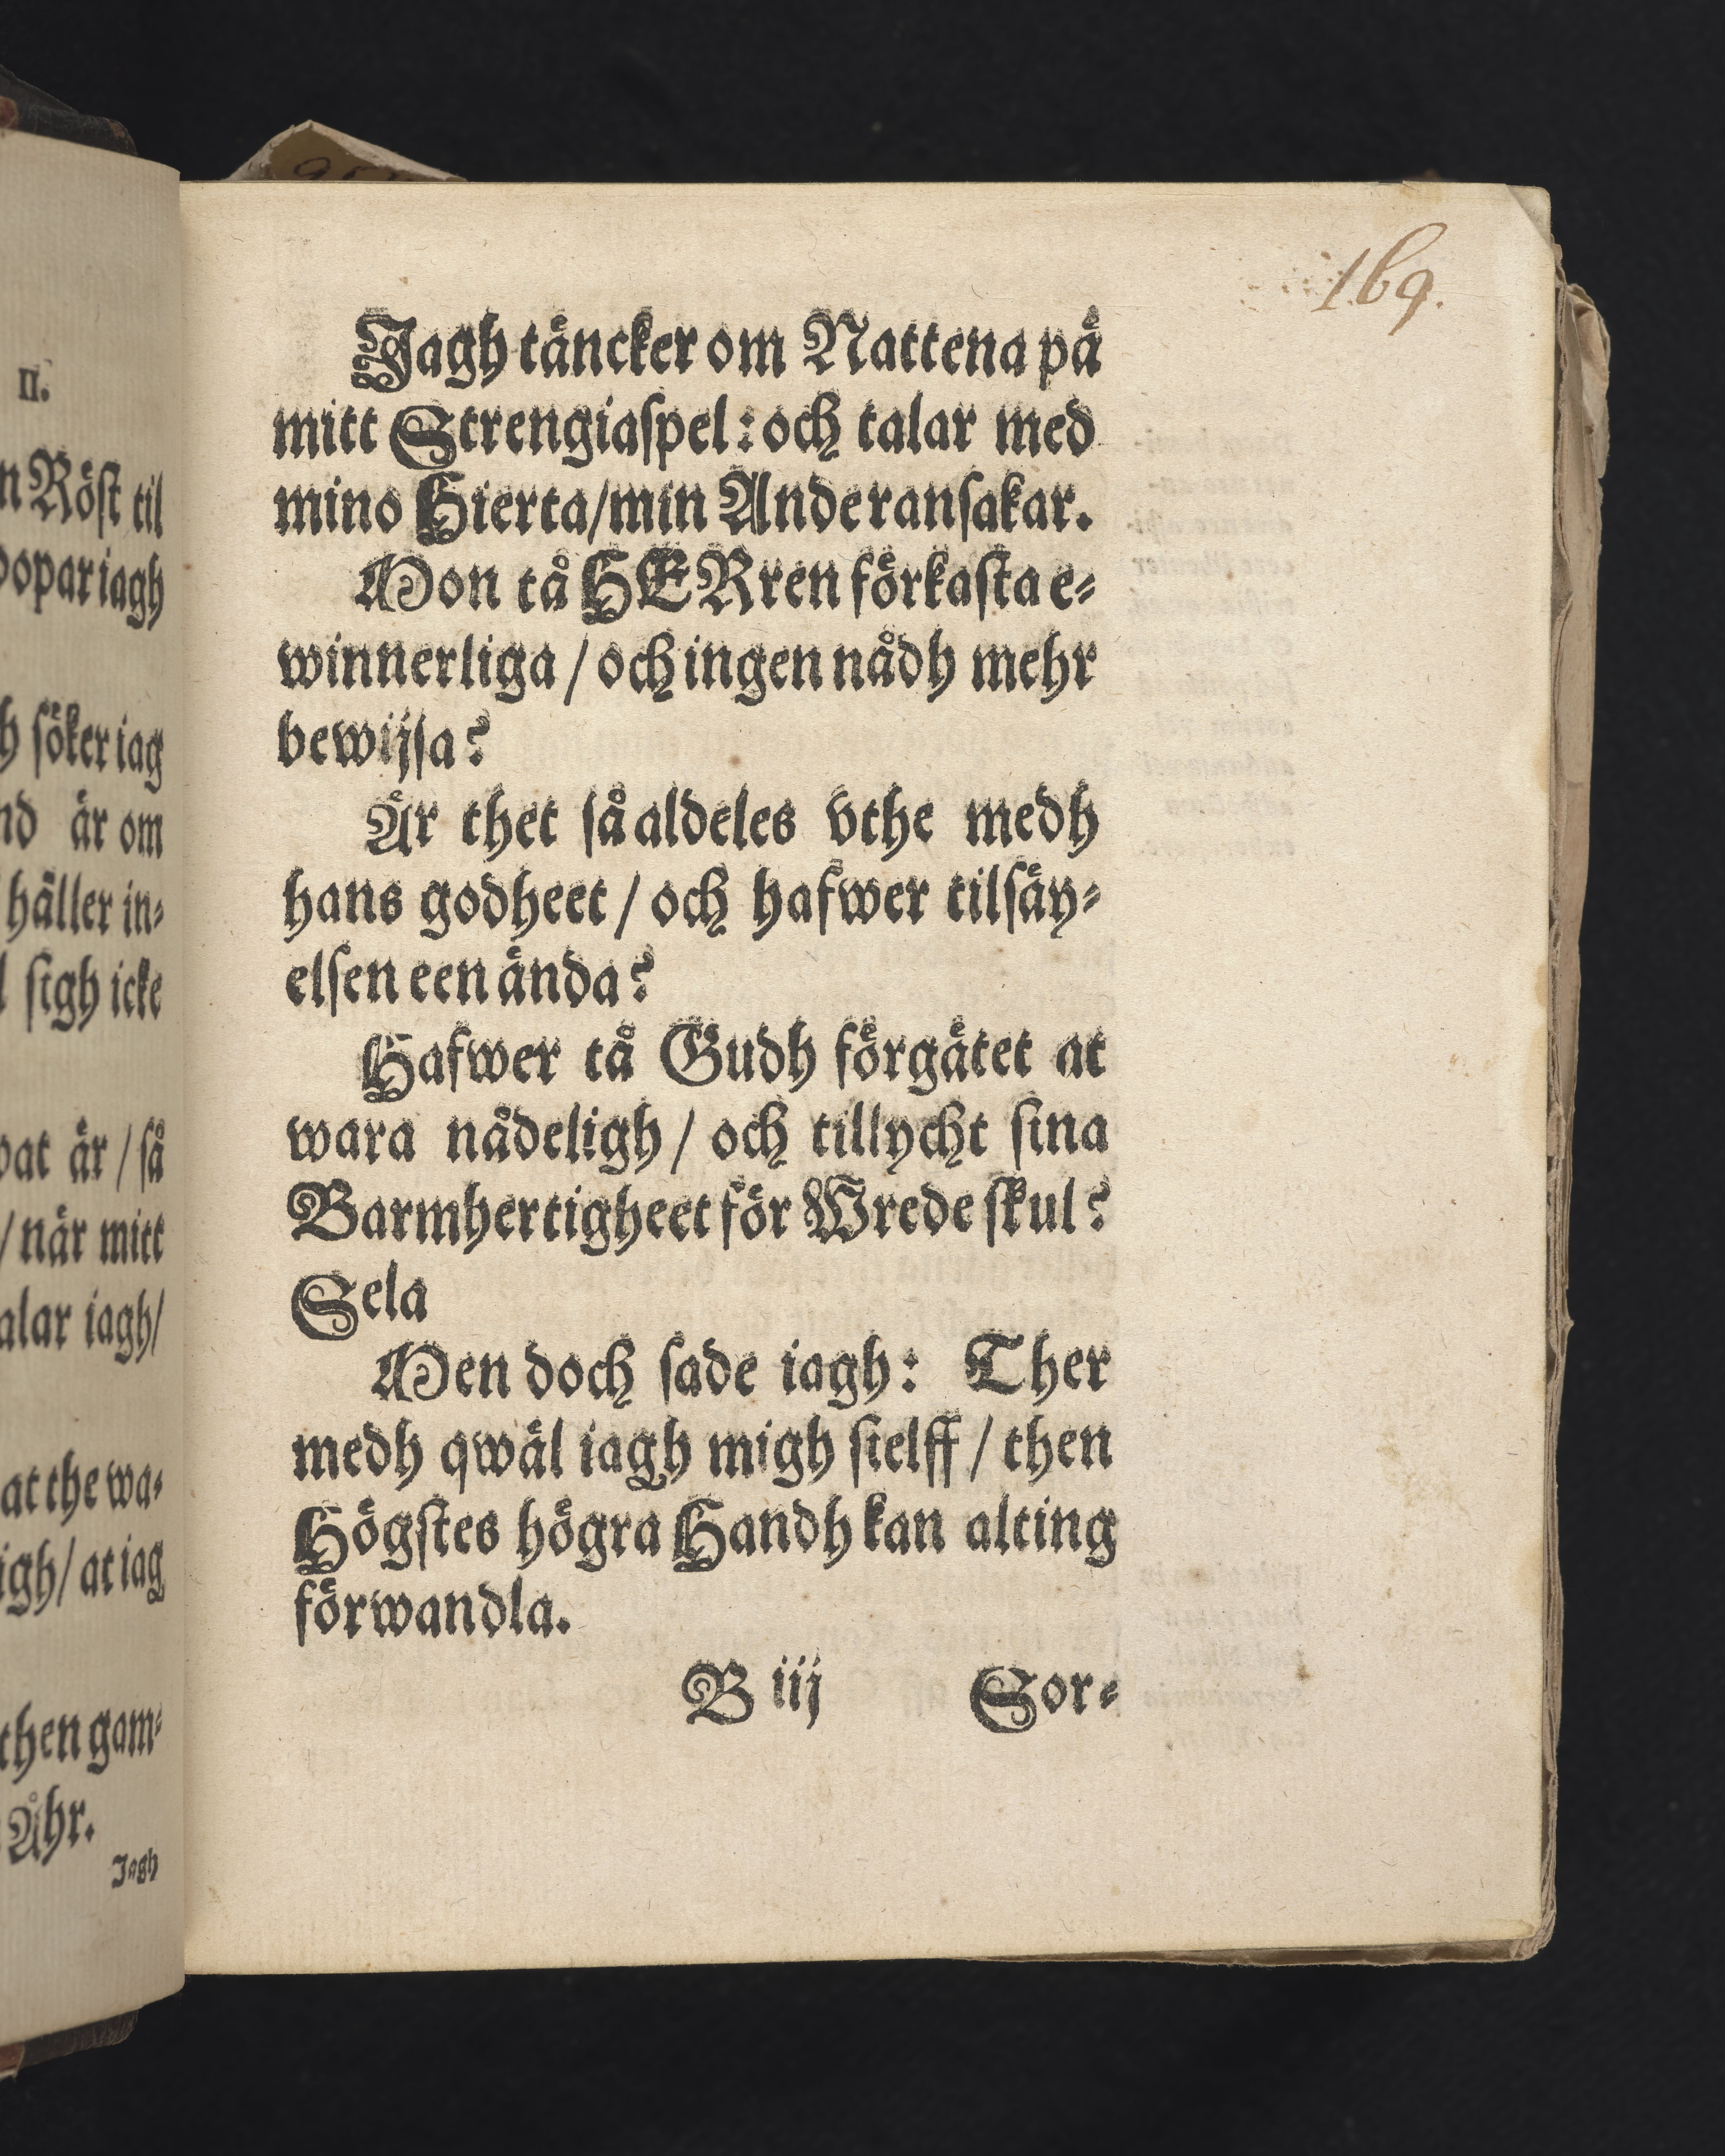 II.
n Röst til
opar iagh
h söker iag
nd är om
häller in⸗
l sigh icke
at är / så
/ när mitt
alar iagh/
at the wa⸗
igh / at iag
then gam⸗
Åhr.
Jagh
169.
Jagh täncker om Nattena på
mitt Strengiaspel: och talar med
mino Hierta/min Ande ransakar.
Mon tå HERren förkasta e⸗
winnerliga / och ingen nådh mehr
bewijsa?
Är thet så aldeles vthe medh
hans godheet / och hafwer tilsäy⸗
elsen een ända?
Hafwer tå Gudh förgätet at
wara nådeligh / och tillycht sina
Barmhertigheet för Wrede skul?
Sela
Men doch sade iagh: Ther
medh qwäl iagh migh sielff / then
Högstes högra Handh kan alting
förwandla.
B iij Sor⸗